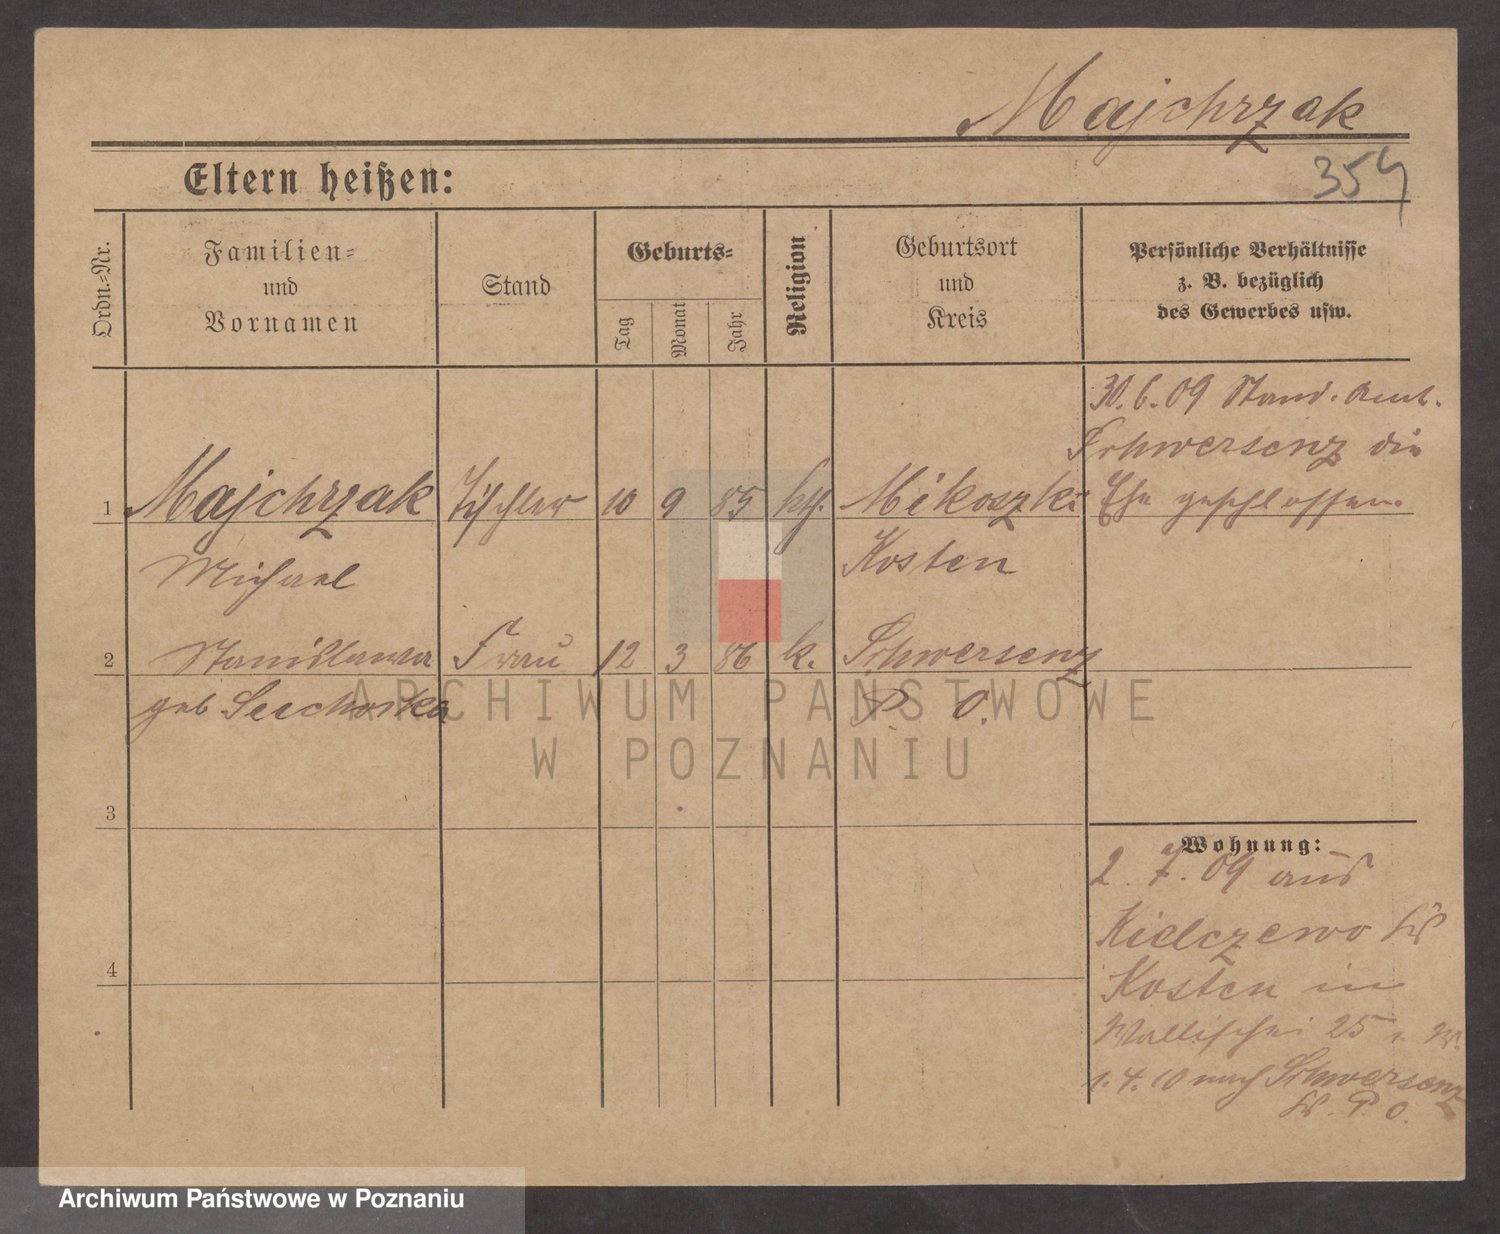 Majchrzak
354
Eltern heißen:
Ordn.-Nr.
Familien-
und
Vornamen
Stand
Geburts-
Tag
Monat
Jahr
Religion
Geburtsort
und
Kreis
Persönliche Verhältnisse
z. B. bezüglich
des Gewerbes usw.
30.6.09 Stand. Amt.
Schwersenz die
1 Majchrzak Tischler 10 9 85 kth. Mikoszki Ehe geschlossen.
Michael Kosten
2 Stanislawa Frau 12 3 86 k. Schwersenz
geb P. O.
3
4
Wohnung:
2. 7. 09 aus
Kielczewo Kr
Kosten in
Wallischei 25
1.4.10 nach Schwersenz
Kr. P. O.
ARCHIWUM PAŃSTWOWE
W POZNANIU
Archiwum Państwowe w Poznaniu